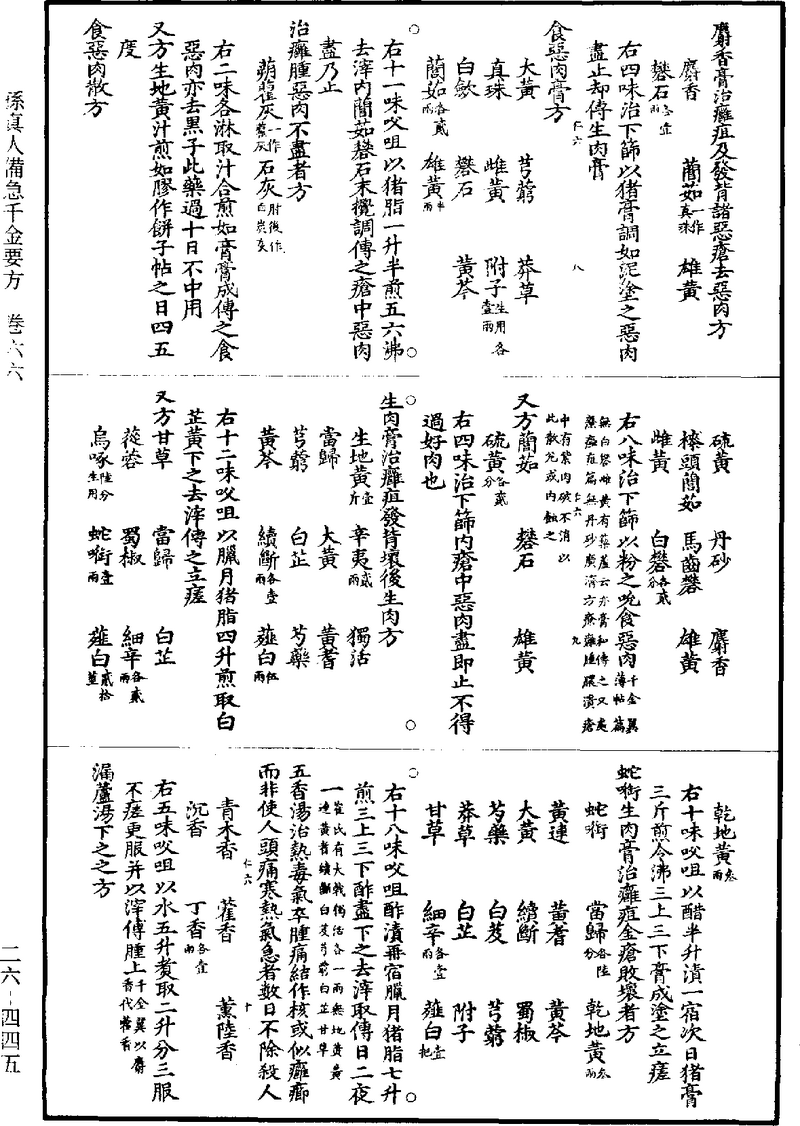 麝香膏治癰疽及發背諸惡瘡去惡肉方
麝香　䕡茹一作真珠　雄黃
礬石各壹兩
右四味治下篩以猪膏調如泥塗之惡肉
盡止却傅生肉膏
食惡肉膏方
大黃　芎藭　莽草
真珠　雌黃　附子生用各壹兩
白斂　礬石　黃芩
䕡茹各貳兩　雄黃半兩
右十一味㕮咀以猪脂一升半煎五六沸
去滓內䕡茹礬石末攪調傅之瘡中惡肉
盡乃止
治癰腫惡肉不盡者方
蒴藋灰一作藋灰　石灰肘後作白炭灰
右二味各淋取汁合煎如膏膏成傅之食
惡肉亦去黑子此藥過十日不中用
又方生地黃汁煎如膠作餅子帖之日四五
度
食惡肉散方
硫黃　丹砂　麝香
榛頭䕡茹　馬齒礬　雄黃
雌黃　白礬各貳分
右八味治下篩以粉之吮食惡肉千金翼薄帖篇
無白礬雌黃有藜蘆云亦膏和傅之又夷
療癰疽篇無丹砂廣濟方療癰腫膿潰瘡
中有紫肉破不消以
此散兌或內蝕之
又方䕡茹　礬石　雄黃
硫黃各貳分
右四味治下篩內瘡中惡肉盡即止不得
過好肉也
生肉膏治癰疽發背壞後生肉方
生地黃壹斤　辛夷貳兩　獨活
當歸　大黃　黃耆
芎藭　白芷　芍藥
黃芩　續斷各壹兩　薤白伍兩
右十二味㕮咀以臘月猪脂四升煎取白
芷黃下之去滓傅之立瘥
又方甘草　當歸　白芷
蓯蓉　蜀椒　細辛各貳兩
烏喙陸分生用　蛇銜壹兩　薤白貳拾莖
乾地黃叁兩
右十味㕮咀以醋半升漬一宿次日猪膏
三斤煎令沸三上三下膏成塗之立瘥
蛇銜生肉膏治癰疽金瘡敗壞者方
蛇銜　當歸各陸分　乾地黃叁兩
黃連　黃耆　黃芩
大黃　續斷　蜀椒
芍藥　白芨　芎藭
莽草　白芷　附子
甘草　細辛各壹兩　薤白壹把
右十八味㕮咀酢漬再宿臘月猪脂七升
煎三上三下酢盡下之去滓取傅日二夜
一崔氏有大戟獨活各一兩無地黃黃
連黃耆續斷白芨芎藭白芷甘草
五香湯治熱毒氣卒腫痛結作核或似癰癤
而非使人頭痛寒熱氣急者數日不除殺人
青木香　藿香　薰陸香
沉香　丁香各壹兩
右五味㕮咀以水五升煑取二升分三服
不瘥更服并以滓傅腫上千金翼以麝香代藿香
漏蘆湯下之之方
孫真人備急千金要方　卷六六
二六－四四五